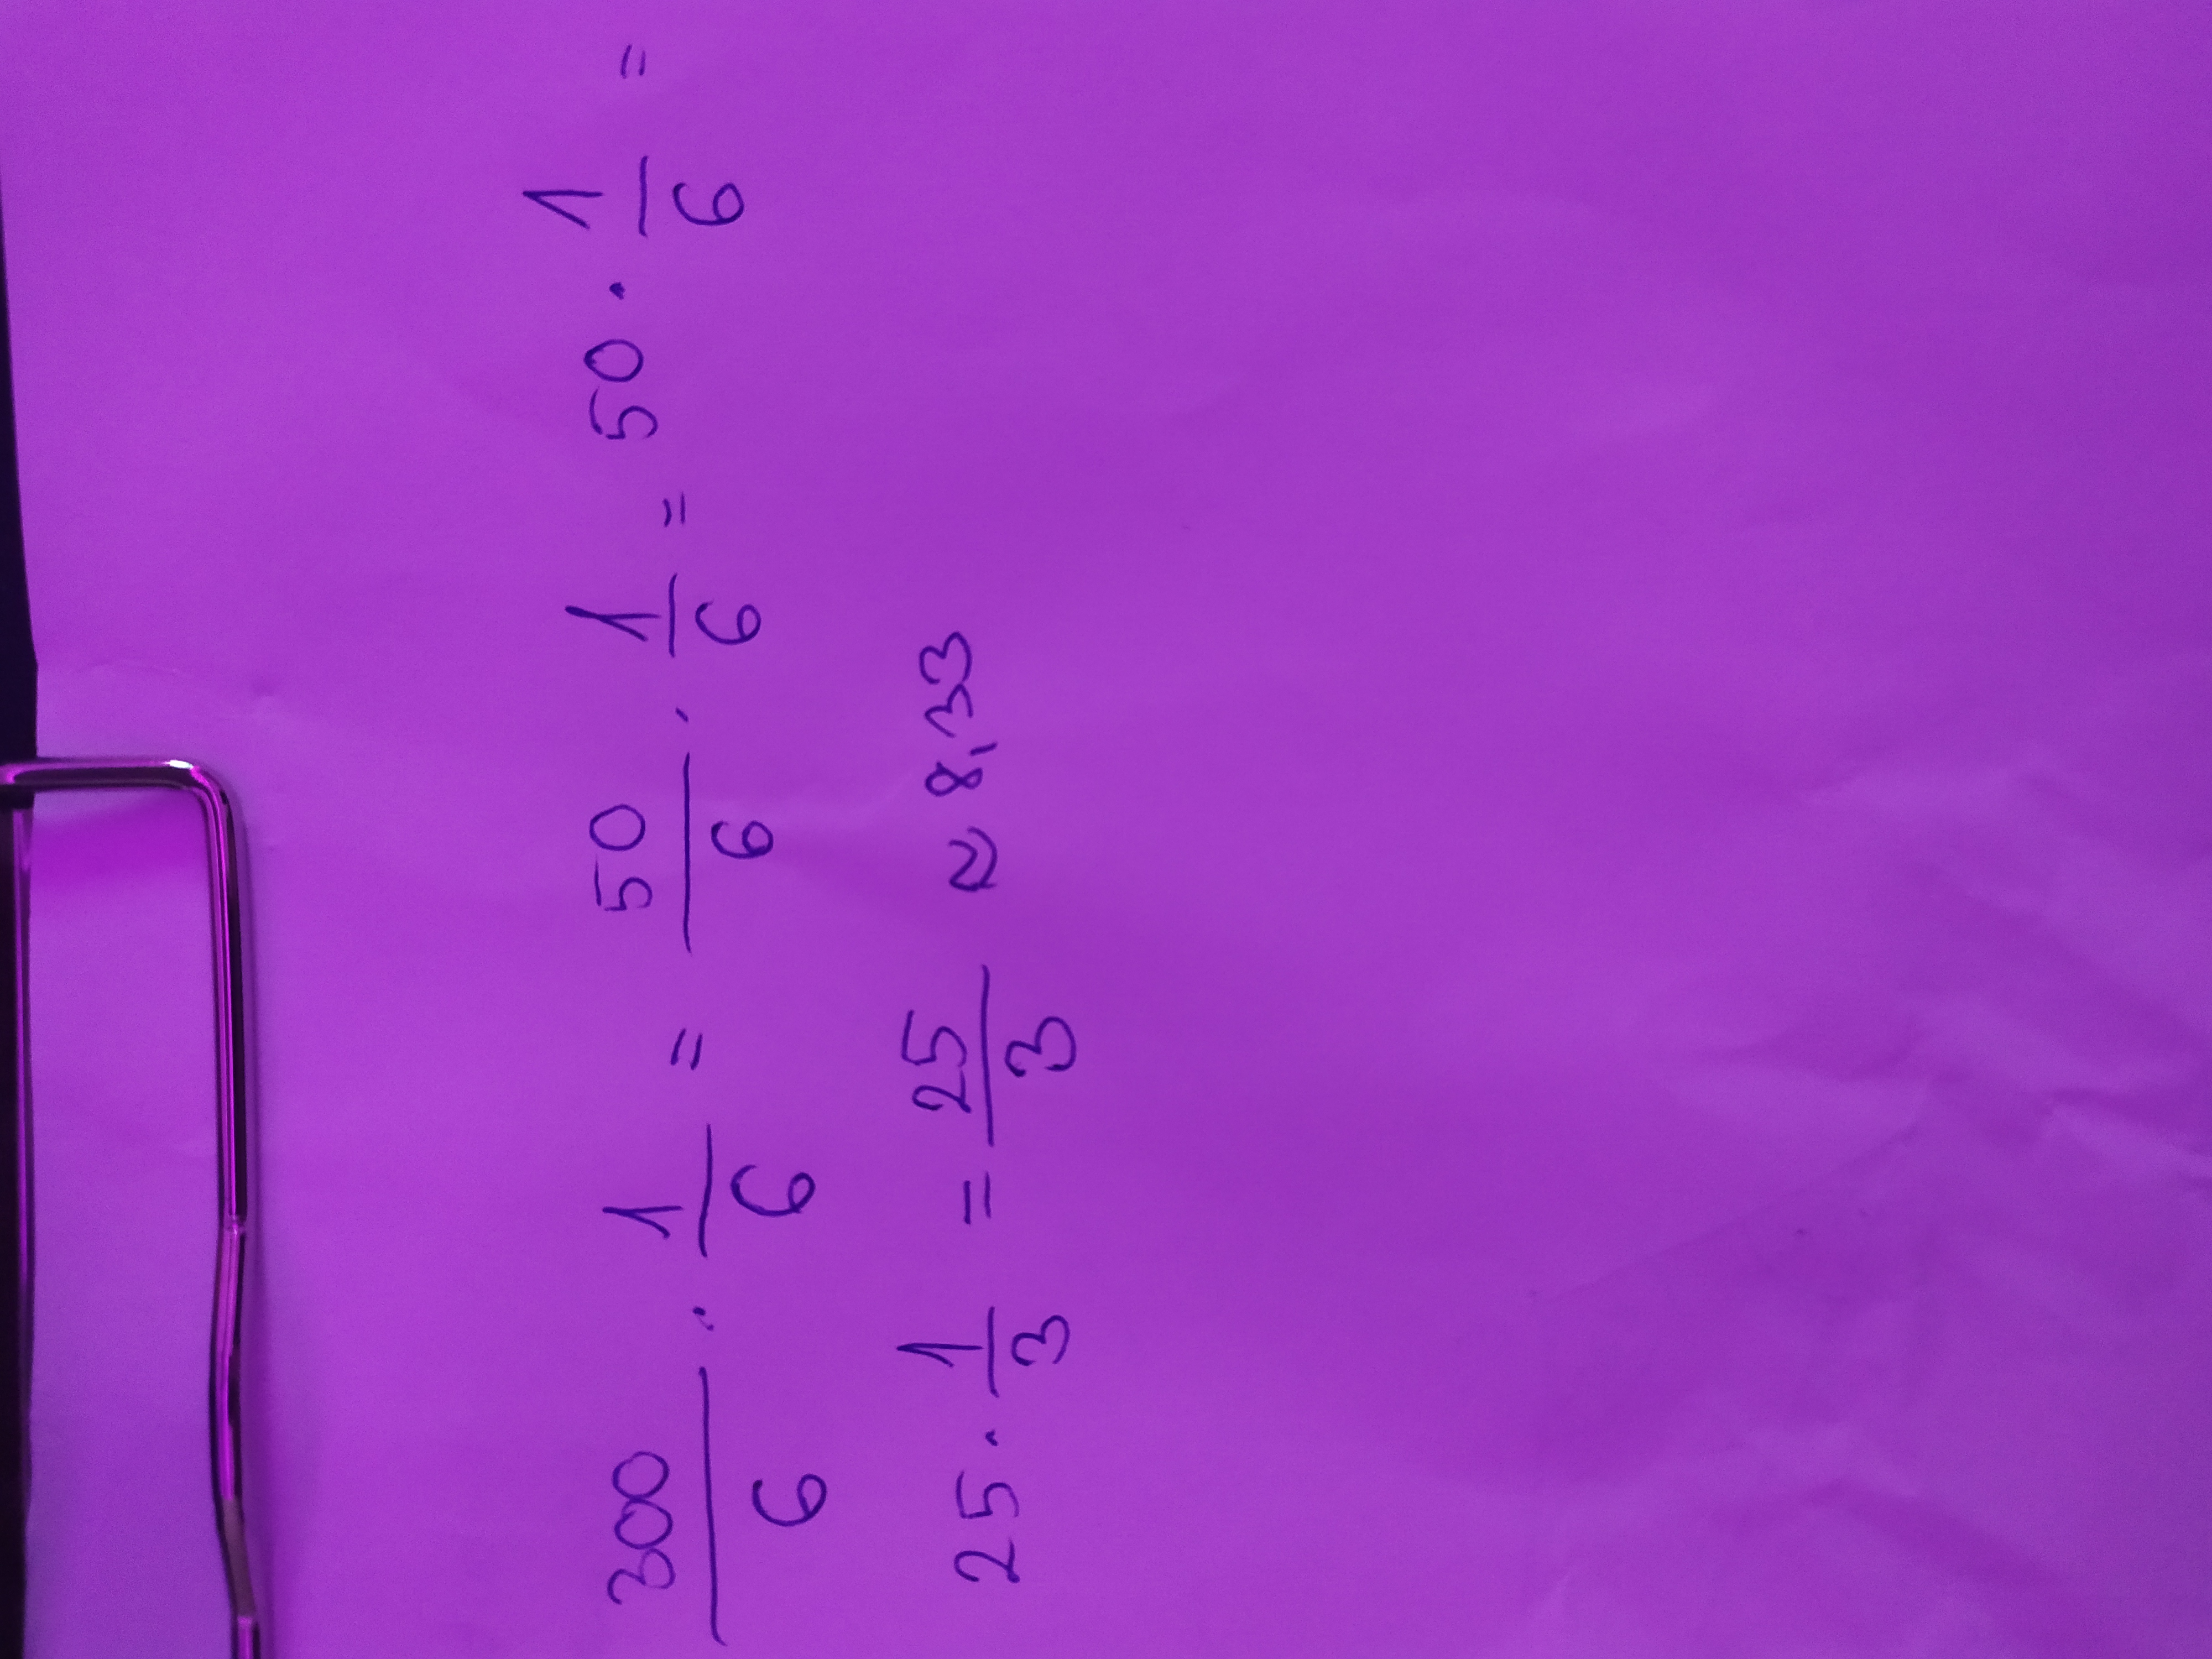 300/6 · 1/6 = 50/6 · 1/6 = 50 · 1/6 =
25 · 1/3 = 25/3 ≈ 8,33